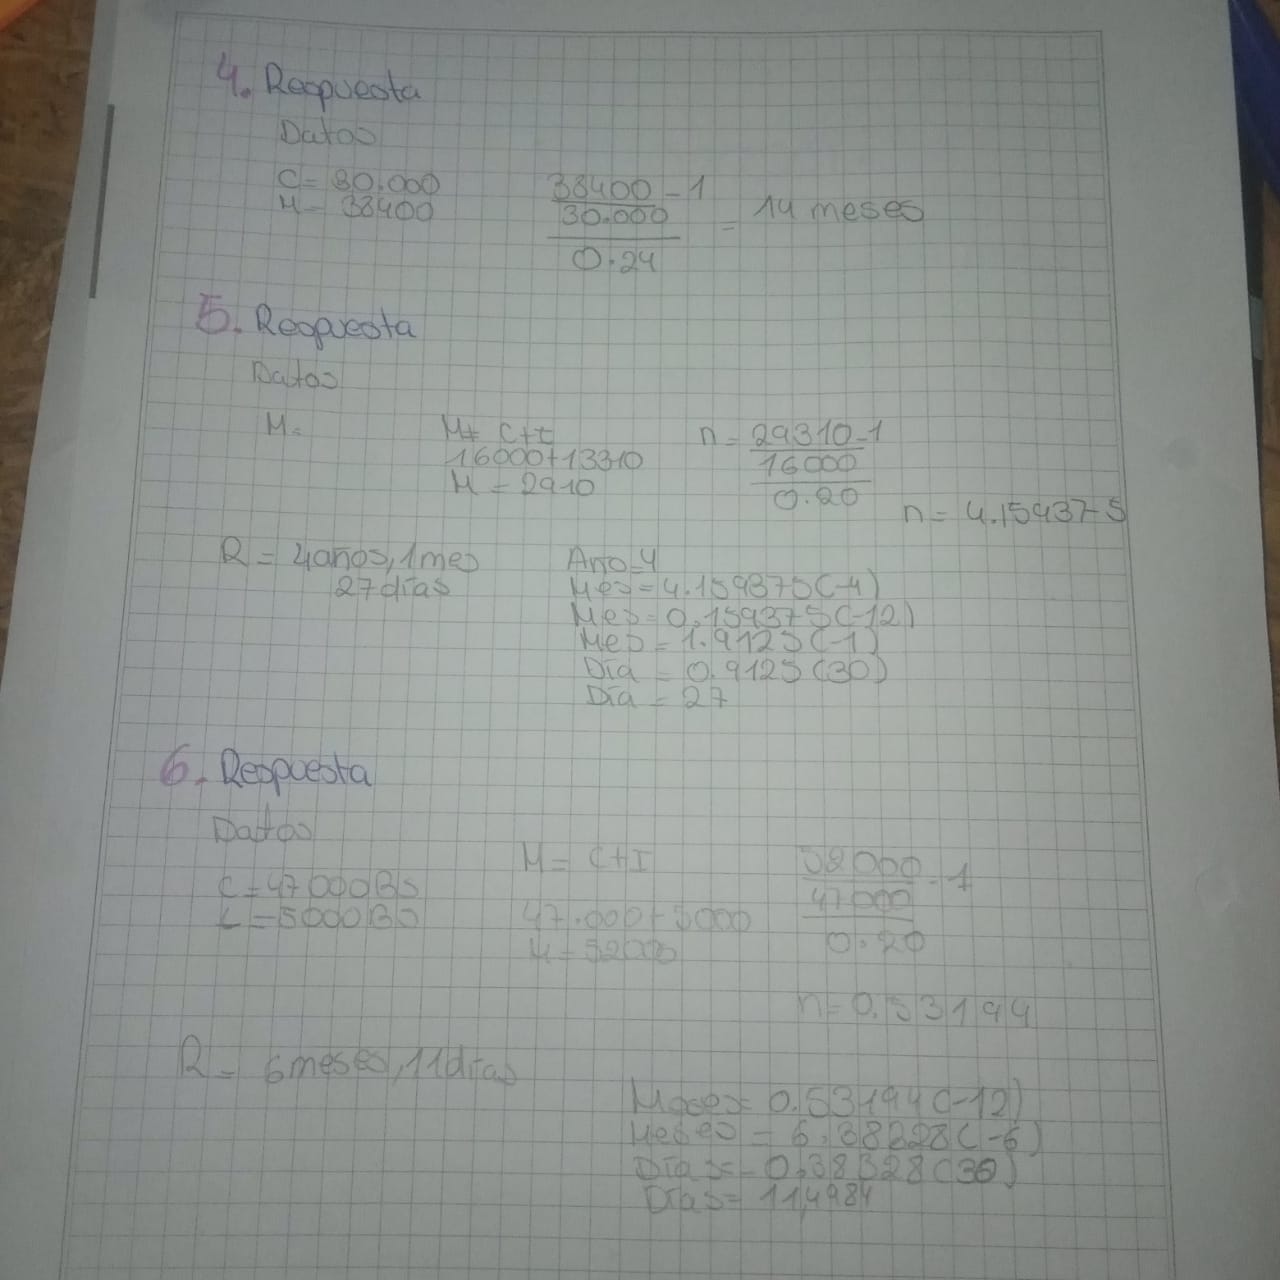 4. Respuesta
Datos
C= 30.000
M= 38400
38400 - 1
30.000
0.24
= 14 meses
5. Respuesta
Datos
M=
M= C+I
16000+13310
M = 2910
n = 29310-1
16000
0.20
n = 4.159375
R = 4años, 1mes
27días
Año=4
Mes=4.159375(-4)
Mes=0.159375(-12)
Mes=1.9125(-1)
Día = 0.9125(30)
Día = 27
6. Respuesta
Datos
C=47000BS
I=5000BS
M= C+I
47.000+5000
M=52000
52000 - 1
47000
0.20
n=0.53194
R= 6meses, 11días
Meses= 0.53194(-12)
Meses = 6.38228(-6)
Días= 0.38328(30)
Días= 11,4984